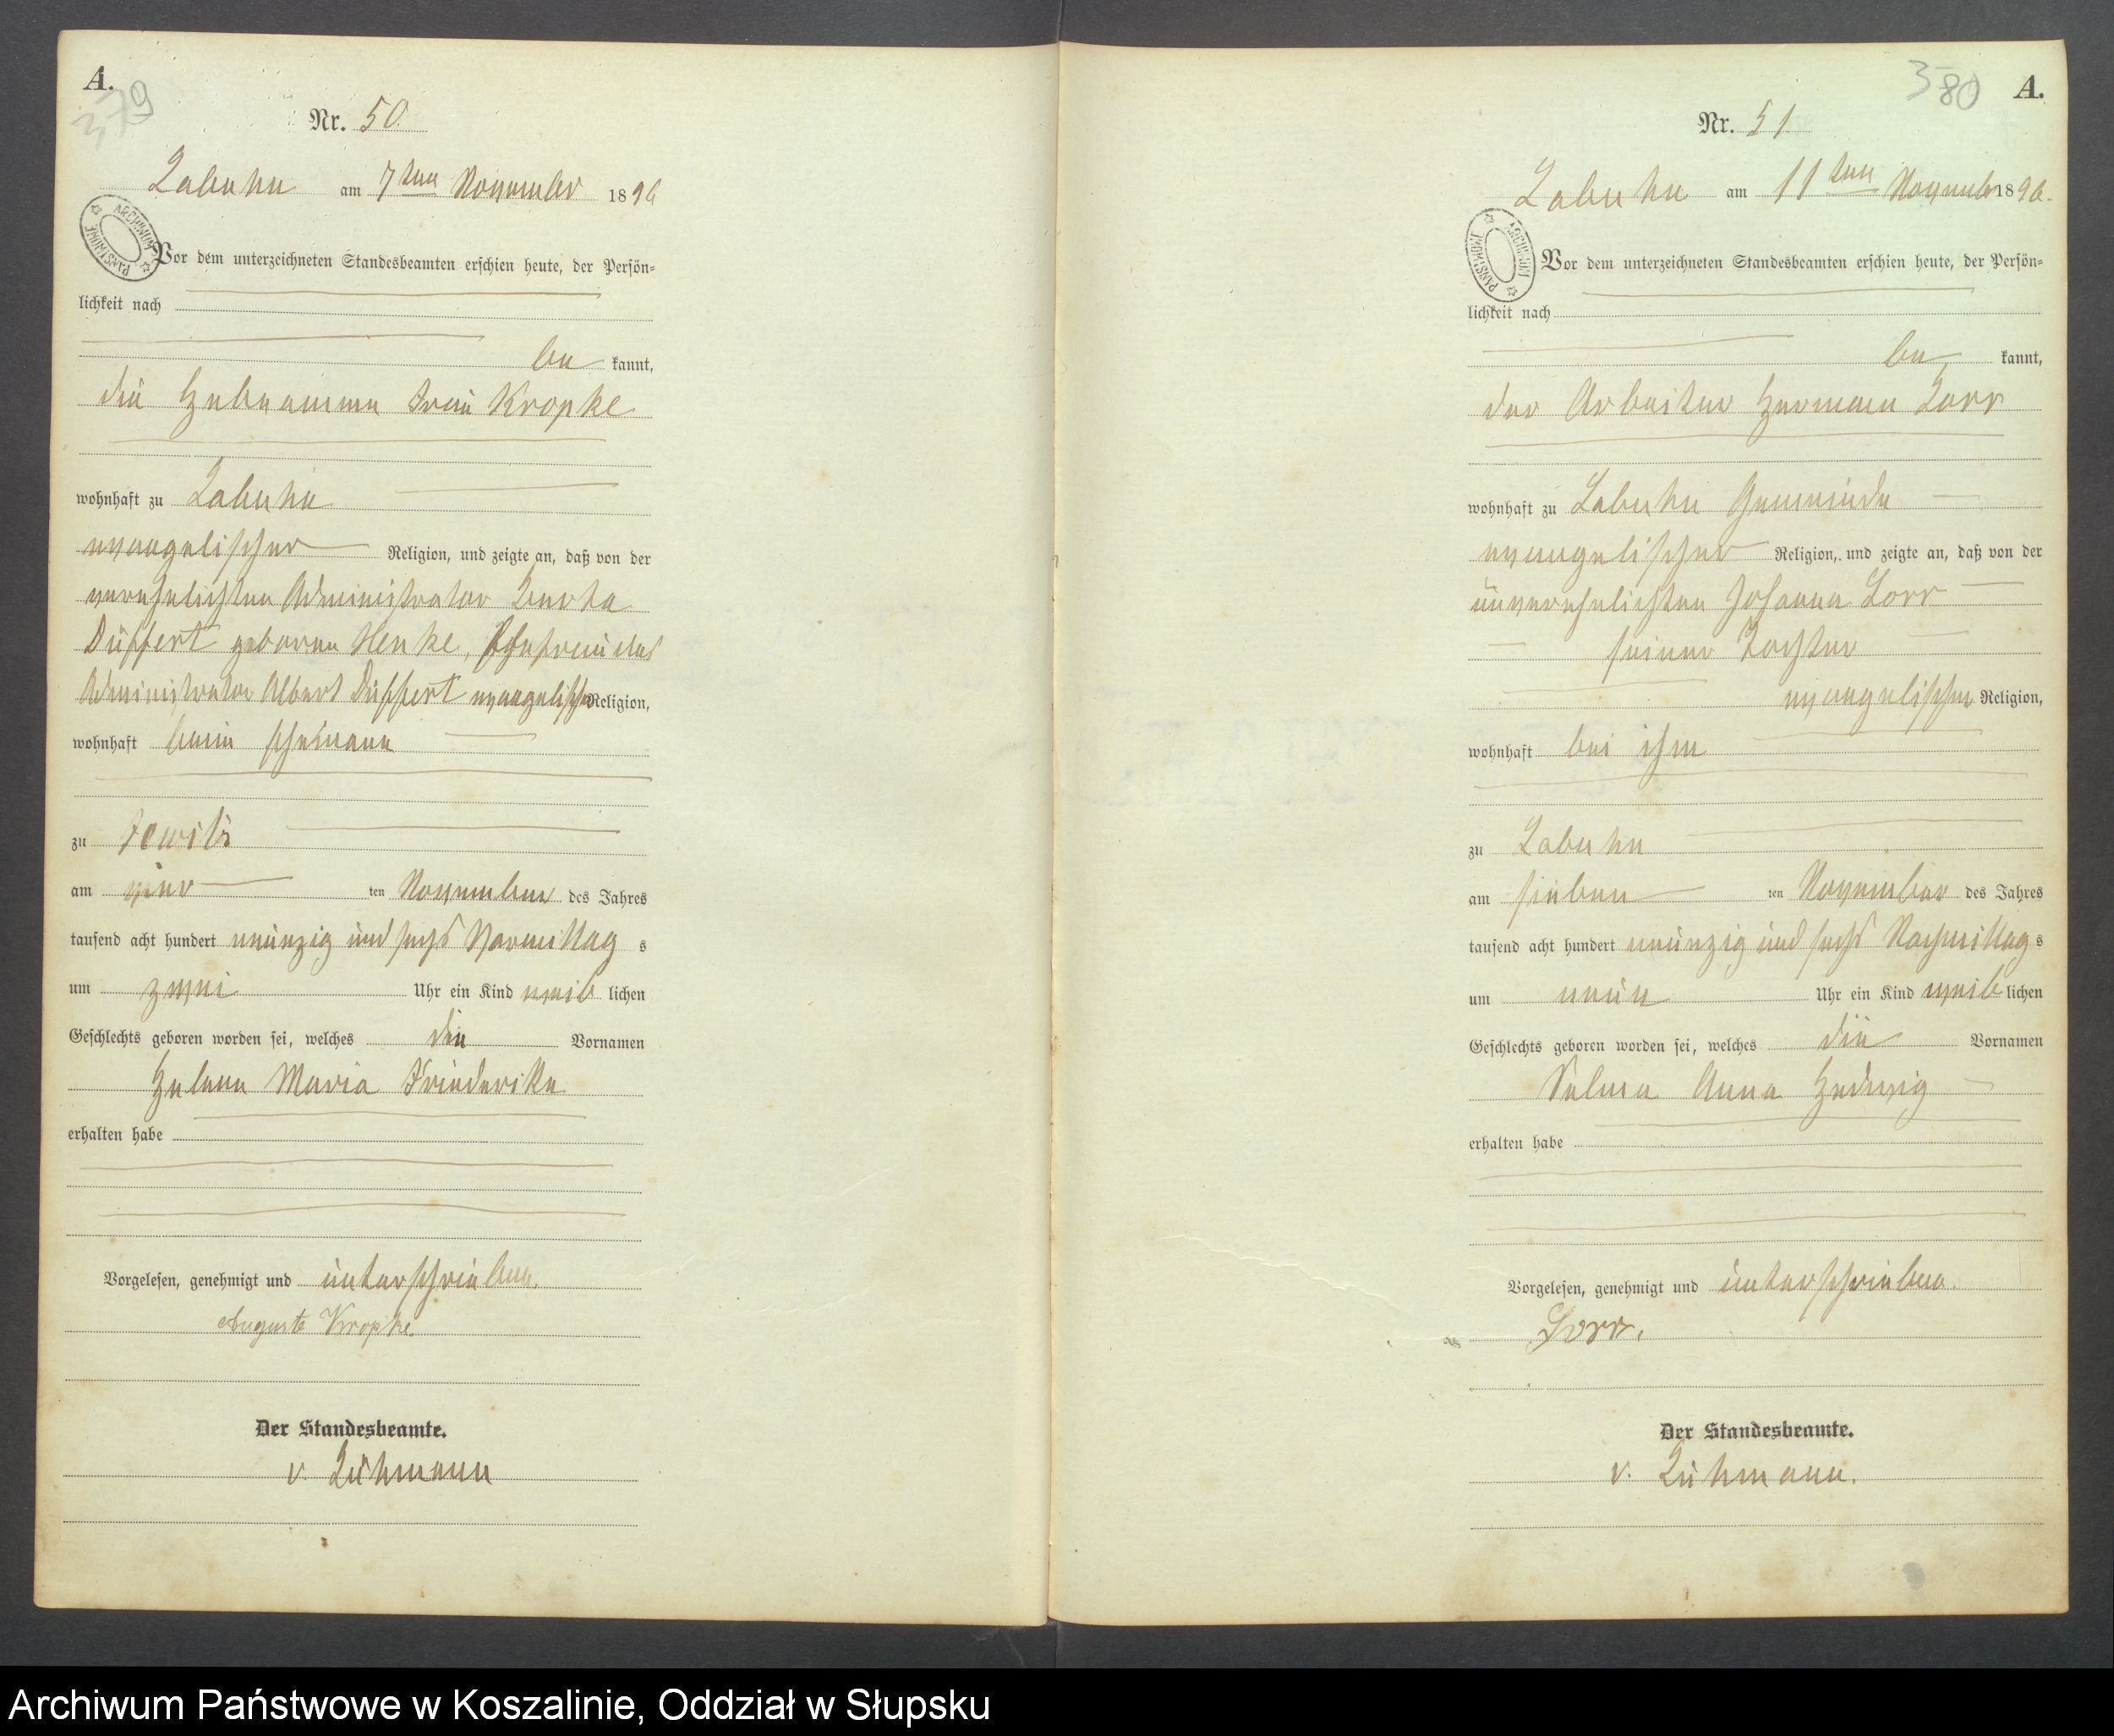 A.
379
Nr. 50.
Labuhn am 7ten November 1896
PAŃSTWOWE ARCHIWUM
Vor dem unterzeichneten Standesbeamten erschien heute, der Persön-
lichkeit nach
be kannt,
die Hebeamme Frau Kropke
wohnhaft zu Labuhn
evangelischer Religion, und zeigte an, daß von der
verehelichten Administrator Berta
Düffert geboren Henke, Ehefrau des
Administrator Albert Düffert evangelischer Religion,
wohnhaft beim Ehemann
zu
am vier ten November des Jahres
tausend acht hundert neunzig und sechs Vormittag s
um zwei Uhr ein Kind weib lichen
Geschlechts geboren worden sei, welches die Vornamen
Helene Maria Friederike
erhalten habe
Vorgelesen, genehmigt und unterschrieben.
Auguste Kropke.
Der Standesbeamte.
v. Lühmann
380
A.
Nr. 51
Labuhn am 11ten November 1896.
PAŃSTWOWE ARCHIWUM
Vor dem unterzeichneten Standesbeamten erschien heute, der Persön-
lichkeit nach
be kannt,
der Arbeiter Hermann Lorr
wohnhaft zu Labuhn Gemeinde
evangelischer Religion, und zeigte an, daß von der
unverehelichten Johanna Lorr
seiner Tochter
evangelischer Religion,
wohnhaft bei ihm
zu Labuhn
am sieben ten November des Jahres
tausend acht hundert neunzig und sechs Nachmittag s
um neun Uhr ein Kind weib lichen
Geschlechts geboren worden sei, welches die Vornamen
Selma Anna Hedwig
erhalten habe
Vorgelesen, genehmigt und unterschrieben.
Lorr.
Der Standesbeamte.
v. Lühmann.
Archiwum Państwowe w Koszalinie, Oddział w Słupsku